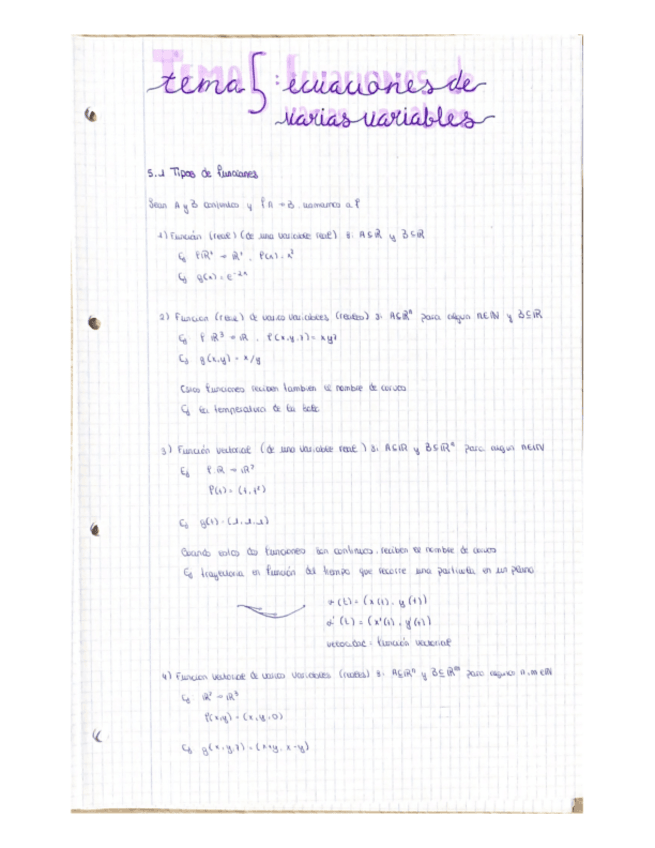 tema 5: ecuaciones de
varias variables
5.1 Tipos de funciones
Sean A y B conjuntos y f A → B. llamamos a f
1) Función (real) (de una variable real) si A⊆R y B⊆R
Ej f:R → R, f(x) = x²
Ej g(x) = e⁻²ˣ
2) Función (real) de varias variables (reales) si A⊆Rⁿ para algún n∈N y B⊆R
Ej f R³ → R, f(x,y,z) = xyz
Ej g(x,y) = x/y
Estas funciones reciben también el nombre de
Ej la temperatura de la
3) Función vectorial (de una variable real) si A⊆R y B⊆Rⁿ para algún n∈N
Ej f: R → R²
f(t) = (t, t²)
Ej g(t) = (1, 1, 1)
Cuando estas funciones son continuas, reciben el nombre de
Ej trayectoria en función del tiempo que recorre una partícula en un plano
α(t) = (x(t), y(t))
α'(t) = (x'(t), y'(t))
velocidad = función vectorial
4) Función vectorial de varias variables (reales) si A⊆Rⁿ y B⊆Rᵐ para algunos n,m∈N
Ej R² → R³
f(x,y) = (x, y, 0)
Ej g(x,y,z) = (x+y, x-y)